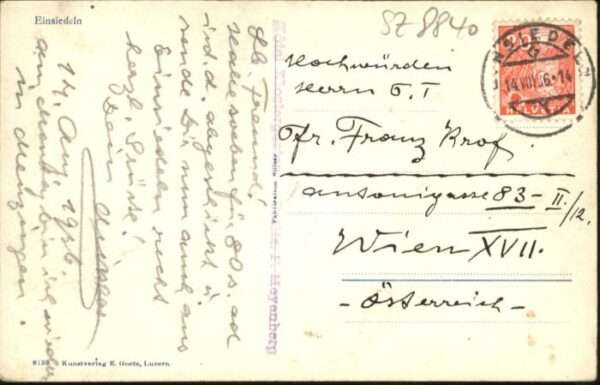 Einsiedeln
SZ 8840
Lb. Freund!
Habe soeben für 80 s. ad
int. d. abgeschickt u.
sende Dir nun auch aus
Einsiedeln recht
herzl. Grüße!
Dein
14. Aug. 1936
in Menzingen.
Hochwürden
Herrn G. T
Pfr. Franz Krof
Antonigasse 83 - II./12.
Wien XVII.
- Österreich -
EINSIEDELN
14 VIII 36 - 14
Meyenberg
8138 Kunstverlag E. Goetz, Luzern.